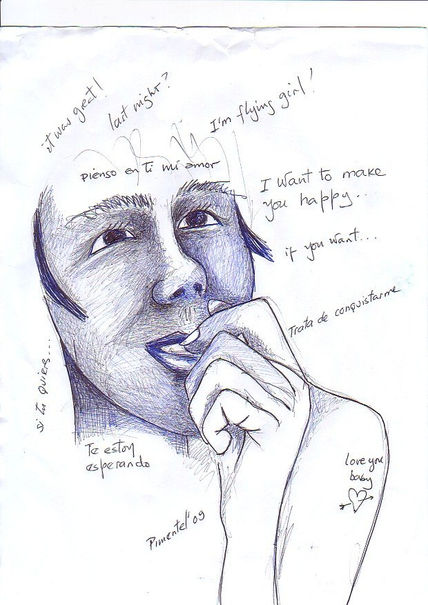 it was great!
last night?
I'm flying girl!
pienso en Ti mi amor
I Want to make
you happy..
if you want...
Trata de conquistarme
si tu quieres...
Te estoy
esperando
love you
baby
Pimentel'09